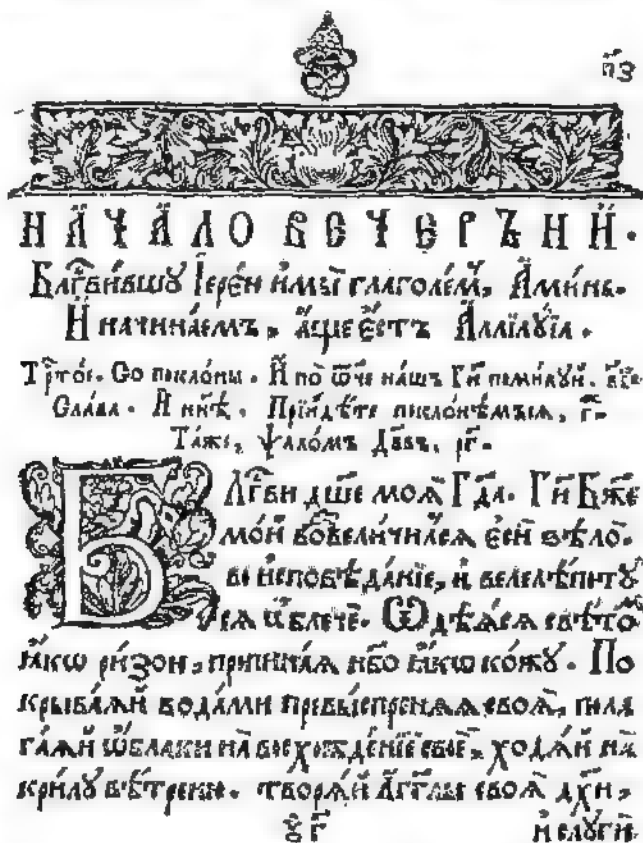 п҃з
НАЧАЛО ВЕЧЕРЪНИ.
Блг҃ви́вшꙋ І҆ере́ꙋ и҆мы̀ глаго́лем, А҆ми́нь.
И҆ начина́емъ, а҆́ще є҆́стъ А҆ллилꙋ́їа.
Трⷭ҇то́е. Со покло́ны. И҆ по ѿ́че на́шъ Гдⷭ҇и поми́лꙋй. в҃і.
Сла́ва. И҆ нн҃ѣ. Прїидѣ́те поклони́мъсѧ, г҃.
Та́же, ѱало́мъ Дв҃дъ, рг҃.
БЛГ҃ви дш҃е моѧ̀ Гдⷭ҇а. Гдⷭ҇и Бж҃е
мо́й возвели́чилсѧ є҆сѝ ѕѣло̀.
во и҆сповѣ́данїе, и҆ велелѣ́потꙋ
сѧ ѡ҆блече́. Ѡ҆дѣ́ѧсѧ свѣ́то
ꙗ҆́кѡ ри́зою, пропина́ѧ не́бо ꙗ҆́кѡ ко́жꙋ. По
крыва́ѧй вода́ми превы́спренѧѧ своѧ̀, пола
га́ѧй ѡ҆́блаки на восхожде́нїе своѐ, ходѧ́й на
крилꙋ̀ вѣ́треню. творѧ́й а҆́гг҃лы своѧ̀ дх҃и,
и҆ слꙋги̑